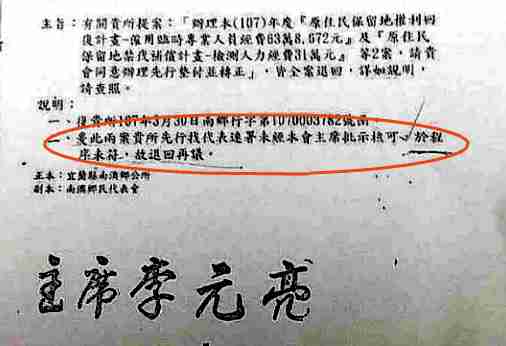 主旨：有關貴所提案：「辦理本(107)年度『原住民保留地權利回
復計畫-僱用臨時專業人員經費63萬8,672元』及『原住民
保留地禁伐補償計畫-檢測人力經費31萬元』等2案，請貴
會同意辦理先行墊付並轉正」，皆全案退回，詳如說明，
請查照。
說明：
一、復貴所107年3月30日南鄉行字第1070003782號函
二、查此兩案貴所先行找代表連署未經本會主席批示核可，於程
序未符，故退回再議。
正本：宜蘭縣南澳鄉公所
副本：南澳鄉民代表會
主席李元亮